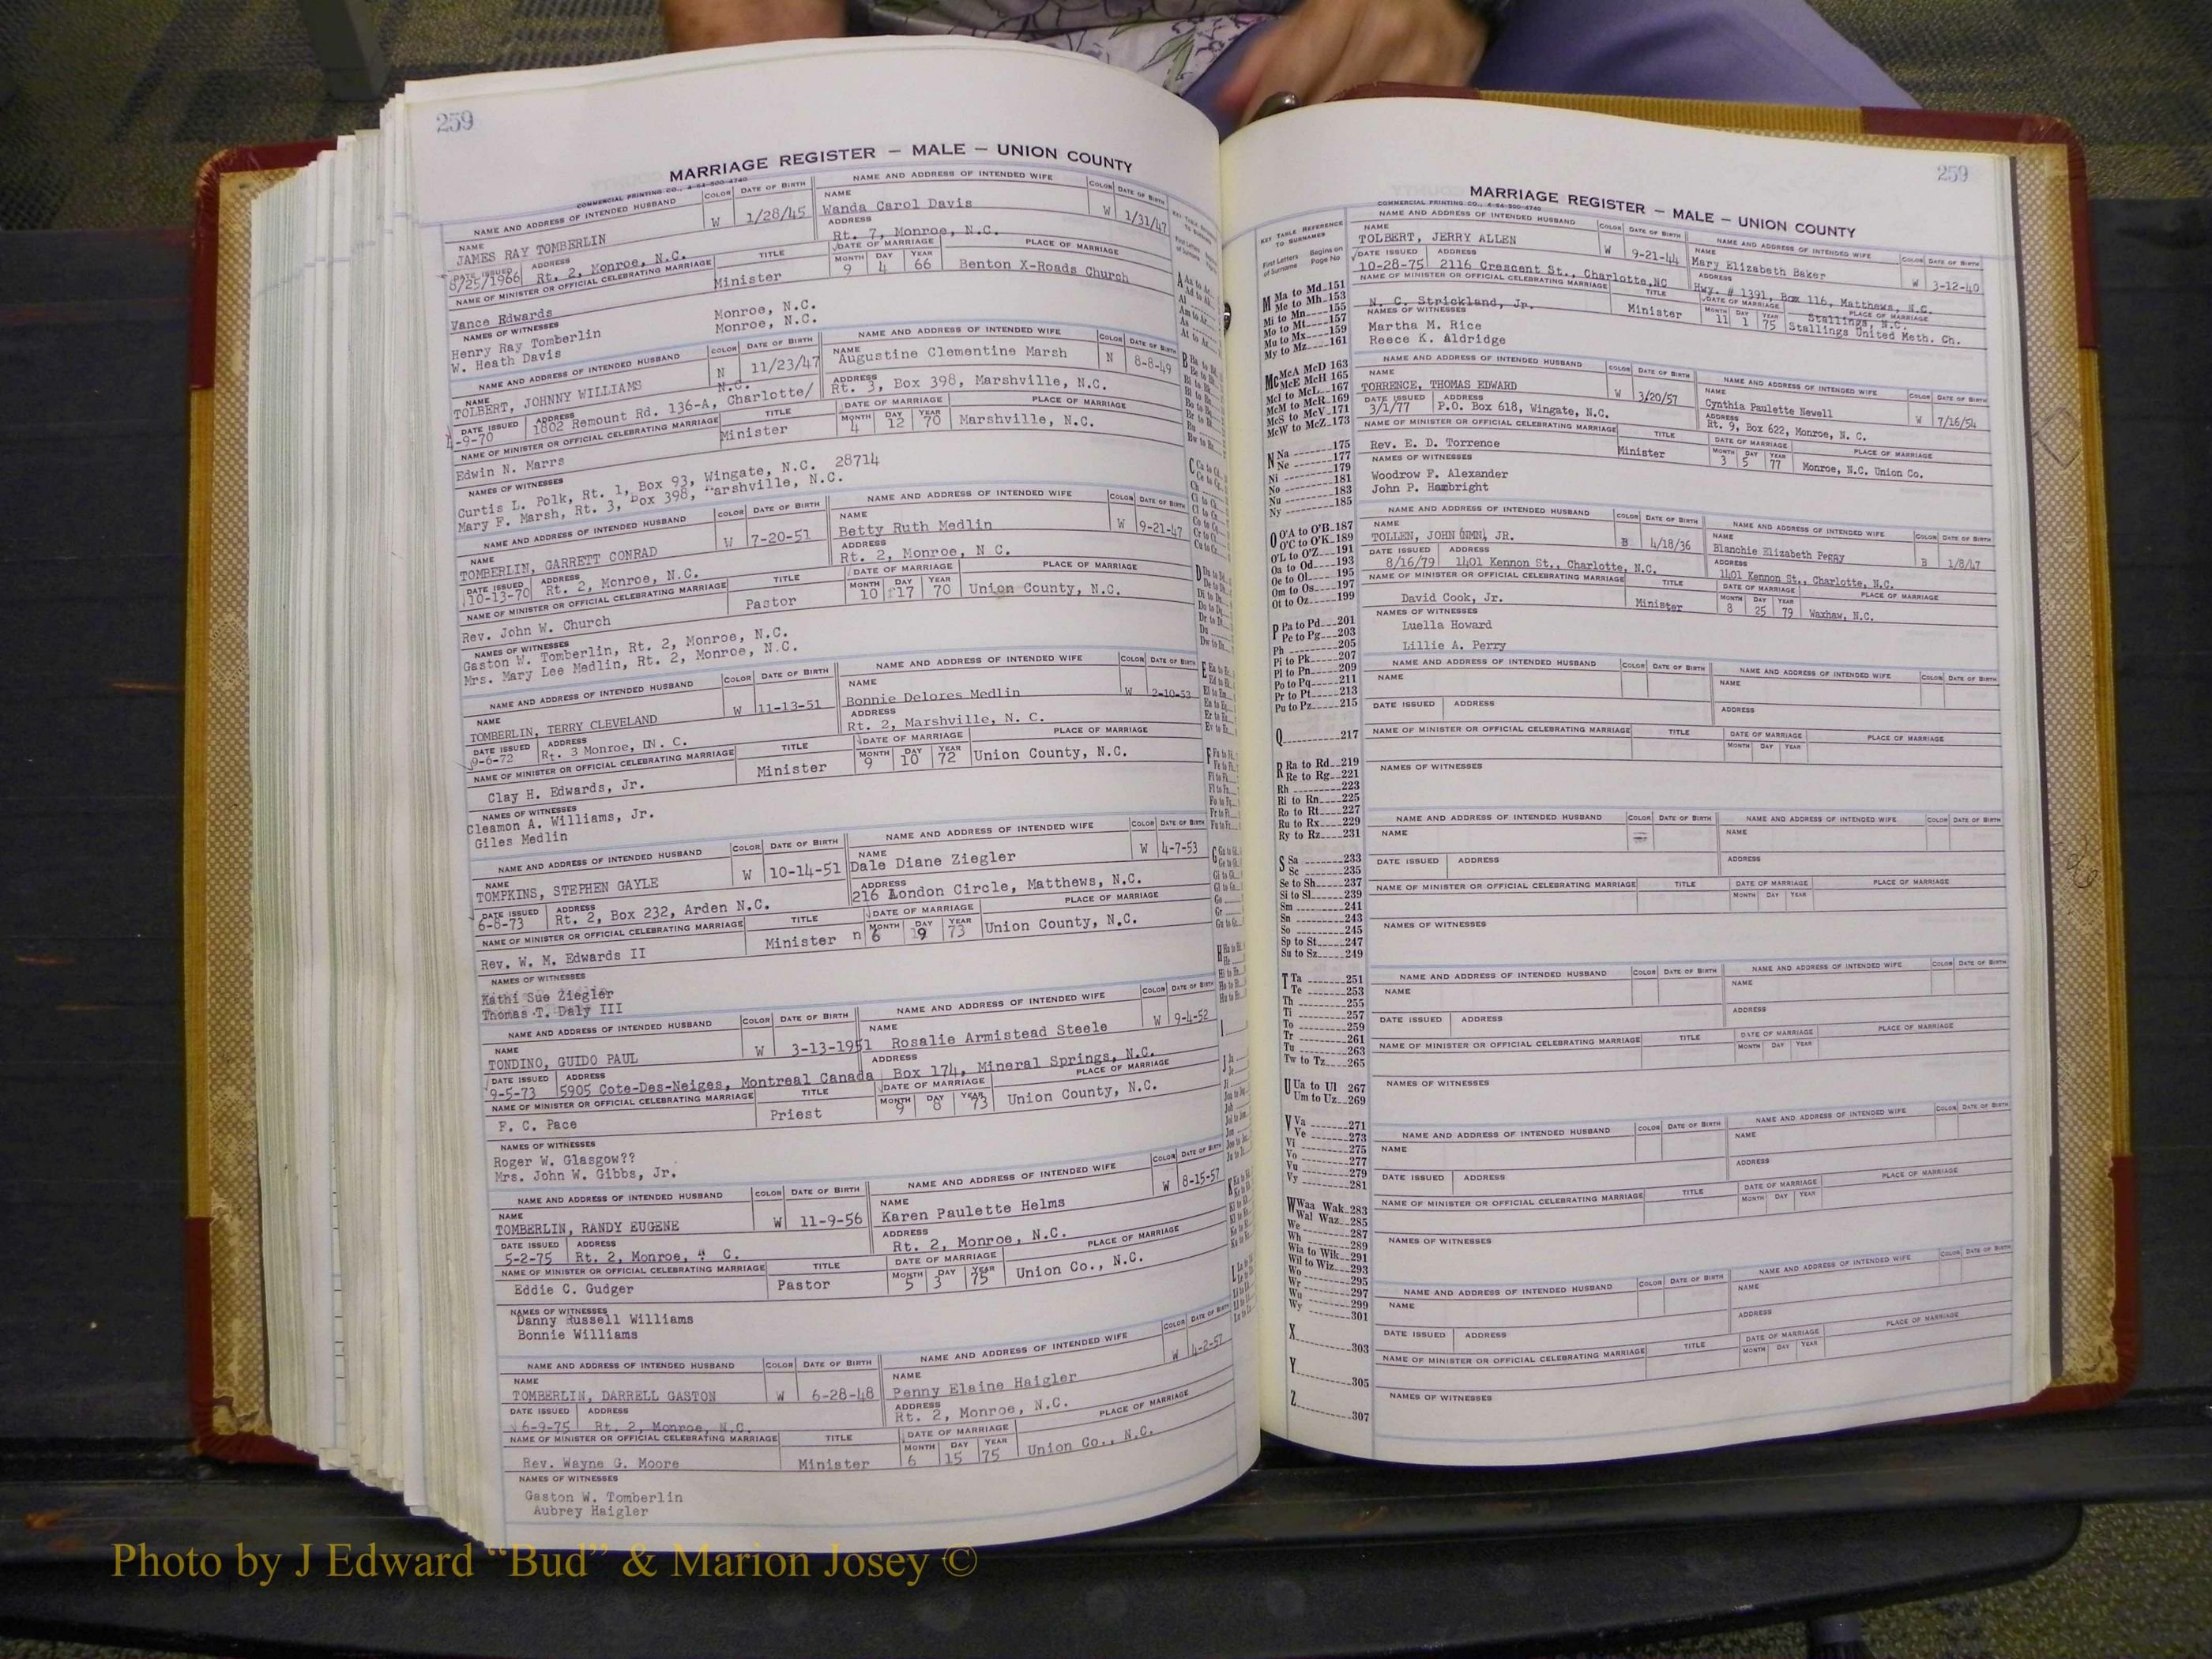 259
MARRIAGE REGISTER – MALE – UNION COUNTY
COMMERCIAL PRINTING CO., 4-64-500-4740
NAME AND ADDRESS OF INTENDED HUSBAND COLOR DATE OF BIRTH NAME AND ADDRESS OF INTENDED WIFE COLOR DATE OF BIRTH
NAME JAMES RAY TOMBERLIN W 1/28/45 NAME Wanda Carol Davis W 1/31/47
DATE ISSUED 8/25/1966 ADDRESS Rt. 2, Monroe, N.C. ADDRESS Rt. 7, Monroe, N.C.
NAME OF MINISTER OR OFFICIAL CELEBRATING MARRIAGE TITLE DATE OF MARRIAGE PLACE OF MARRIAGE
Vance Edwards Minister MONTH 9 DAY 4 YEAR 66 Benton X-Roads Church
NAMES OF WITNESSES
Henry Ray Tomberlin Monroe, N.C.
W. Heath Davis Monroe, N.C.
NAME AND ADDRESS OF INTENDED HUSBAND COLOR DATE OF BIRTH NAME AND ADDRESS OF INTENDED WIFE COLOR DATE OF BIRTH
NAME TOLBERT, JOHNNY WILLIAMS N 11/23/47 NAME Augustine Clementine Marsh N 8-8-49
DATE ISSUED 4-9-70 ADDRESS 1802 Remount Rd. 136-A, Charlotte/ N.C. ADDRESS Rt. 3, Box 398, Marshville, N.C.
NAME OF MINISTER OR OFFICIAL CELEBRATING MARRIAGE TITLE DATE OF MARRIAGE PLACE OF MARRIAGE
Edwin N. Marrs Minister MONTH 4 DAY 12 YEAR 70 Marshville, N.C.
NAMES OF WITNESSES
Curtis L. Polk, Rt. 1, Box 93, Wingate, N.C. 28714
Mary F. Marsh, Rt. 3, Box 398, Marshville, N.C.
NAME AND ADDRESS OF INTENDED HUSBAND COLOR DATE OF BIRTH NAME AND ADDRESS OF INTENDED WIFE COLOR DATE OF BIRTH
NAME TOMBERLIN, GARRETT CONRAD W 7-20-51 NAME Betty Ruth Medlin W 9-21-47
DATE ISSUED 10-13-70 ADDRESS Rt. 2, Monroe, N.C. ADDRESS Rt. 2, Monroe, N C.
NAME OF MINISTER OR OFFICIAL CELEBRATING MARRIAGE TITLE DATE OF MARRIAGE PLACE OF MARRIAGE
Rev. John W. Church Pastor MONTH 10 DAY 17 YEAR 70 Union County, N.C.
NAMES OF WITNESSES
Gaston W. Tomberlin, Rt. 2, Monroe, N.C.
Mrs. Mary Lee Medlin, Rt. 2, Monroe, N.C.
NAME AND ADDRESS OF INTENDED HUSBAND COLOR DATE OF BIRTH NAME AND ADDRESS OF INTENDED WIFE COLOR DATE OF BIRTH
NAME TOMBERLIN, TERRY CLEVELAND W 11-13-51 NAME Bonnie Delores Medlin W 2-10-53
DATE ISSUED 9-6-72 ADDRESS Rt. 3 Monroe, N. C. ADDRESS Rt. 2, Marshville, N. C.
NAME OF MINISTER OR OFFICIAL CELEBRATING MARRIAGE TITLE DATE OF MARRIAGE PLACE OF MARRIAGE
Clay H. Edwards, Jr. Minister MONTH 9 DAY 10 YEAR 72 Union County, N.C.
NAMES OF WITNESSES
Cleamon A. Williams, Jr.
Giles Medlin
NAME AND ADDRESS OF INTENDED HUSBAND COLOR DATE OF BIRTH NAME AND ADDRESS OF INTENDED WIFE COLOR DATE OF BIRTH
NAME TOMPKINS, STEPHEN GAYLE W 10-14-51 NAME Dale Diane Ziegler W 4-7-53
DATE ISSUED 6-8-73 ADDRESS Rt. 2, Box 232, Arden N.C. ADDRESS 216 London Circle, Matthews, N.C.
NAME OF MINISTER OR OFFICIAL CELEBRATING MARRIAGE TITLE DATE OF MARRIAGE PLACE OF MARRIAGE
Rev. W. M. Edwards II Minister n MONTH 6 DAY 9 YEAR 73 Union County, N.C.
NAMES OF WITNESSES
Kathi Sue Ziegler
Thomas T. Daly III
NAME AND ADDRESS OF INTENDED HUSBAND COLOR DATE OF BIRTH NAME AND ADDRESS OF INTENDED WIFE COLOR DATE OF BIRTH
NAME TONDINO, GUIDO PAUL W 3-13-1951 NAME Rosalie Armistead Steele W 9-4-52
DATE ISSUED 9-5-73 ADDRESS 5905 Cote-Des-Neiges, Montreal Canada ADDRESS Box 174, Mineral Springs, N.C.
NAME OF MINISTER OR OFFICIAL CELEBRATING MARRIAGE TITLE DATE OF MARRIAGE PLACE OF MARRIAGE
F. C. Pace Priest MONTH 9 DAY 8 YEAR 73 Union County, N.C.
NAMES OF WITNESSES
Roger W. Glasgow??
Mrs. John W. Gibbs, Jr.
NAME AND ADDRESS OF INTENDED HUSBAND COLOR DATE OF BIRTH NAME AND ADDRESS OF INTENDED WIFE COLOR DATE OF BIRTH
NAME TOMBERLIN, RANDY EUGENE W 11-9-56 NAME Karen Paulette Helms W 8-15-57
DATE ISSUED 5-2-75 ADDRESS Rt. 2, Monroe, C. ADDRESS Rt. 2, Monroe, N.C.
NAME OF MINISTER OR OFFICIAL CELEBRATING MARRIAGE TITLE DATE OF MARRIAGE PLACE OF MARRIAGE
Eddie C. Gudger Pastor MONTH 5 DAY 3 YEAR 75 Union Co., N.C.
NAMES OF WITNESSES
Danny Russell Williams
Bonnie Williams
NAME AND ADDRESS OF INTENDED HUSBAND COLOR DATE OF BIRTH NAME AND ADDRESS OF INTENDED WIFE COLOR DATE OF BIRTH
NAME TOMBERLIN, DARRELL GASTON W 6-28-48 NAME Penny Elaine Haigler W 4-2-57
DATE ISSUED 6-9-75 ADDRESS Rt. 2, Monroe, N.C. ADDRESS Rt. 2, Monroe, N.C.
NAME OF MINISTER OR OFFICIAL CELEBRATING MARRIAGE TITLE DATE OF MARRIAGE PLACE OF MARRIAGE
Rev. Wayne G. Moore Minister MONTH 6 DAY 15 YEAR 75 Union Co., N.C.
NAMES OF WITNESSES
Gaston W. Tomberlin
Aubrey Haigler
259
MARRIAGE REGISTER – MALE – UNION COUNTY
COMMERCIAL PRINTING CO., 4-64-500-4740
KEY TABLE REFERENCE TO SURNAMES
First Letters of Surname Begins on Page No
M Ma to Md 151
Me to Mh 153
Mi to Mn 155
Mo to Mt 157
Mu to Mx 159
My to Mz 161
Mc McA McD 163
McE McH 165
McI to McL 167
McM to McR 169
McS to McV 171
McW to McZ 173
N Na 175
Ne 177
Ni 179
No 181
Nu 183
Ny 185
O O'A to O'B 187
O'C to O'K 189
O'L to O'Z 191
Oa to Od 193
Oe to Ol 195
Om to Os 197
Ot to Oz 199
P Pa to Pd 201
Pe to Pg 203
Ph 205
Pi to Pk 207
Pl to Pn 209
Po to Pq 211
Pr to Pt 213
Pu to Pz 215
Q 217
R Ra to Rd 219
Re to Rg 221
Rh 223
Ri to Rn 225
Ro to Rt 227
Ru to Rx 229
Ry to Rz 231
S Sa 233
Sc 235
Se to Sh 237
Si to Sl 239
Sm 241
Sn 243
So 245
Sp to St 247
Su to Sz 249
T Ta 251
Te 253
Th 255
Ti 257
To 259
Tr 261
Tu 263
Tw to Tz 265
U Ua to Ul 267
Um to Uz 269
V Va 271
Ve 273
Vi 275
Vo 277
Vu 279
Vy 281
W Waa Wak 283
Wal Waz 285
We 287
Wh 289
Wia to Wik 291
Wil to Wiz 293
Wo 295
Wr 297
Wu 299
Wy 301
X 303
Y 305
Z 307
NAME AND ADDRESS OF INTENDED HUSBAND COLOR DATE OF BIRTH NAME AND ADDRESS OF INTENDED WIFE COLOR DATE OF BIRTH
NAME TOLBERT, JERRY ALLEN W 9-21-44 NAME Mary Elizabeth Baker W 3-12-40
DATE ISSUED 10-28-75 ADDRESS 2116 Crescent St., Charlotte,NC ADDRESS Hwy. # 1391, Box 116, Matthews, N.C.
NAME OF MINISTER OR OFFICIAL CELEBRATING MARRIAGE TITLE DATE OF MARRIAGE PLACE OF MARRIAGE
N. C. Strickland, Jr. Minister MONTH 11 DAY 1 YEAR 75 Stallings, N.C. Stallings United Meth. Ch.
NAMES OF WITNESSES
Martha M. Rice
Reece K. Aldridge
NAME AND ADDRESS OF INTENDED HUSBAND COLOR DATE OF BIRTH NAME AND ADDRESS OF INTENDED WIFE COLOR DATE OF BIRTH
NAME TORRENCE, THOMAS EDWARD W 3/20/57 NAME Cynthia Paulette Newell W 7/16/54
DATE ISSUED 3/1/77 ADDRESS P.O. Box 618, Wingate, N.C. ADDRESS Rt. 9, Box 622, Monroe, N. C.
NAME OF MINISTER OR OFFICIAL CELEBRATING MARRIAGE TITLE DATE OF MARRIAGE PLACE OF MARRIAGE
Rev. E. D. Torrence Minister MONTH 3 DAY 5 YEAR 77 Monroe, N.C. Union Co.
NAMES OF WITNESSES
Woodrow F. Alexander
John P. Hambright
NAME AND ADDRESS OF INTENDED HUSBAND COLOR DATE OF BIRTH NAME AND ADDRESS OF INTENDED WIFE COLOR DATE OF BIRTH
NAME TOLLEN, JOHN (NMN), JR. B 4/18/36 NAME Blanchie Elizabeth Perry B 1/8/47
DATE ISSUED 8/16/79 ADDRESS 1401 Kennon St., Charlotte, N.C. ADDRESS 1401 Kennon St., Charlotte, N.C.
NAME OF MINISTER OR OFFICIAL CELEBRATING MARRIAGE TITLE DATE OF MARRIAGE PLACE OF MARRIAGE
David Cook, Jr. Minister MONTH 8 DAY 25 YEAR 79 Waxhaw, N.C.
NAMES OF WITNESSES
Luella Howard
Lillie A. Perry
NAME AND ADDRESS OF INTENDED HUSBAND COLOR DATE OF BIRTH NAME AND ADDRESS OF INTENDED WIFE COLOR DATE OF BIRTH
NAME NAME
DATE ISSUED ADDRESS ADDRESS
NAME OF MINISTER OR OFFICIAL CELEBRATING MARRIAGE TITLE DATE OF MARRIAGE PLACE OF MARRIAGE
MONTH DAY YEAR
NAMES OF WITNESSES
NAME AND ADDRESS OF INTENDED HUSBAND COLOR DATE OF BIRTH NAME AND ADDRESS OF INTENDED WIFE COLOR DATE OF BIRTH
NAME NAME
DATE ISSUED ADDRESS ADDRESS
NAME OF MINISTER OR OFFICIAL CELEBRATING MARRIAGE TITLE DATE OF MARRIAGE PLACE OF MARRIAGE
MONTH DAY YEAR
NAMES OF WITNESSES
NAME AND ADDRESS OF INTENDED HUSBAND COLOR DATE OF BIRTH NAME AND ADDRESS OF INTENDED WIFE COLOR DATE OF BIRTH
NAME NAME
DATE ISSUED ADDRESS ADDRESS
NAME OF MINISTER OR OFFICIAL CELEBRATING MARRIAGE TITLE DATE OF MARRIAGE PLACE OF MARRIAGE
MONTH DAY YEAR
NAMES OF WITNESSES
NAME AND ADDRESS OF INTENDED HUSBAND COLOR DATE OF BIRTH NAME AND ADDRESS OF INTENDED WIFE COLOR DATE OF BIRTH
NAME NAME
DATE ISSUED ADDRESS ADDRESS
NAME OF MINISTER OR OFFICIAL CELEBRATING MARRIAGE TITLE DATE OF MARRIAGE PLACE OF MARRIAGE
MONTH DAY YEAR
NAMES OF WITNESSES
NAME AND ADDRESS OF INTENDED HUSBAND COLOR DATE OF BIRTH NAME AND ADDRESS OF INTENDED WIFE COLOR DATE OF BIRTH
NAME NAME
DATE ISSUED ADDRESS ADDRESS
NAME OF MINISTER OR OFFICIAL CELEBRATING MARRIAGE TITLE DATE OF MARRIAGE PLACE OF MARRIAGE
MONTH DAY YEAR
NAMES OF WITNESSES
Photo by J Edward “Bud” & Marion Josey ©